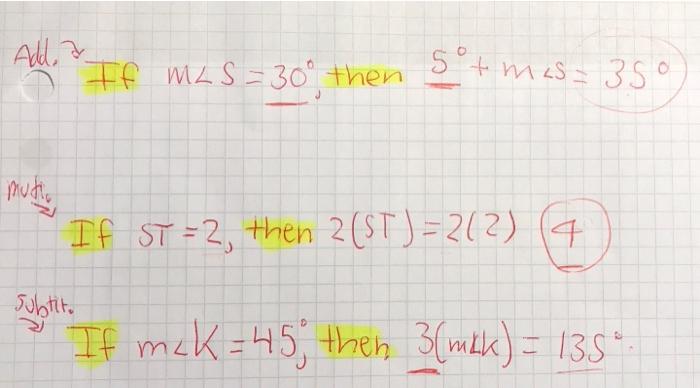 Add.
If m∠S = 30°, then 5° + m∠S = 35°
Multi.
If ST = 2, then 2(ST) = 2(2) 4
Subtit.
If m∠K = 45°, then 3(m∠K) = 135°.